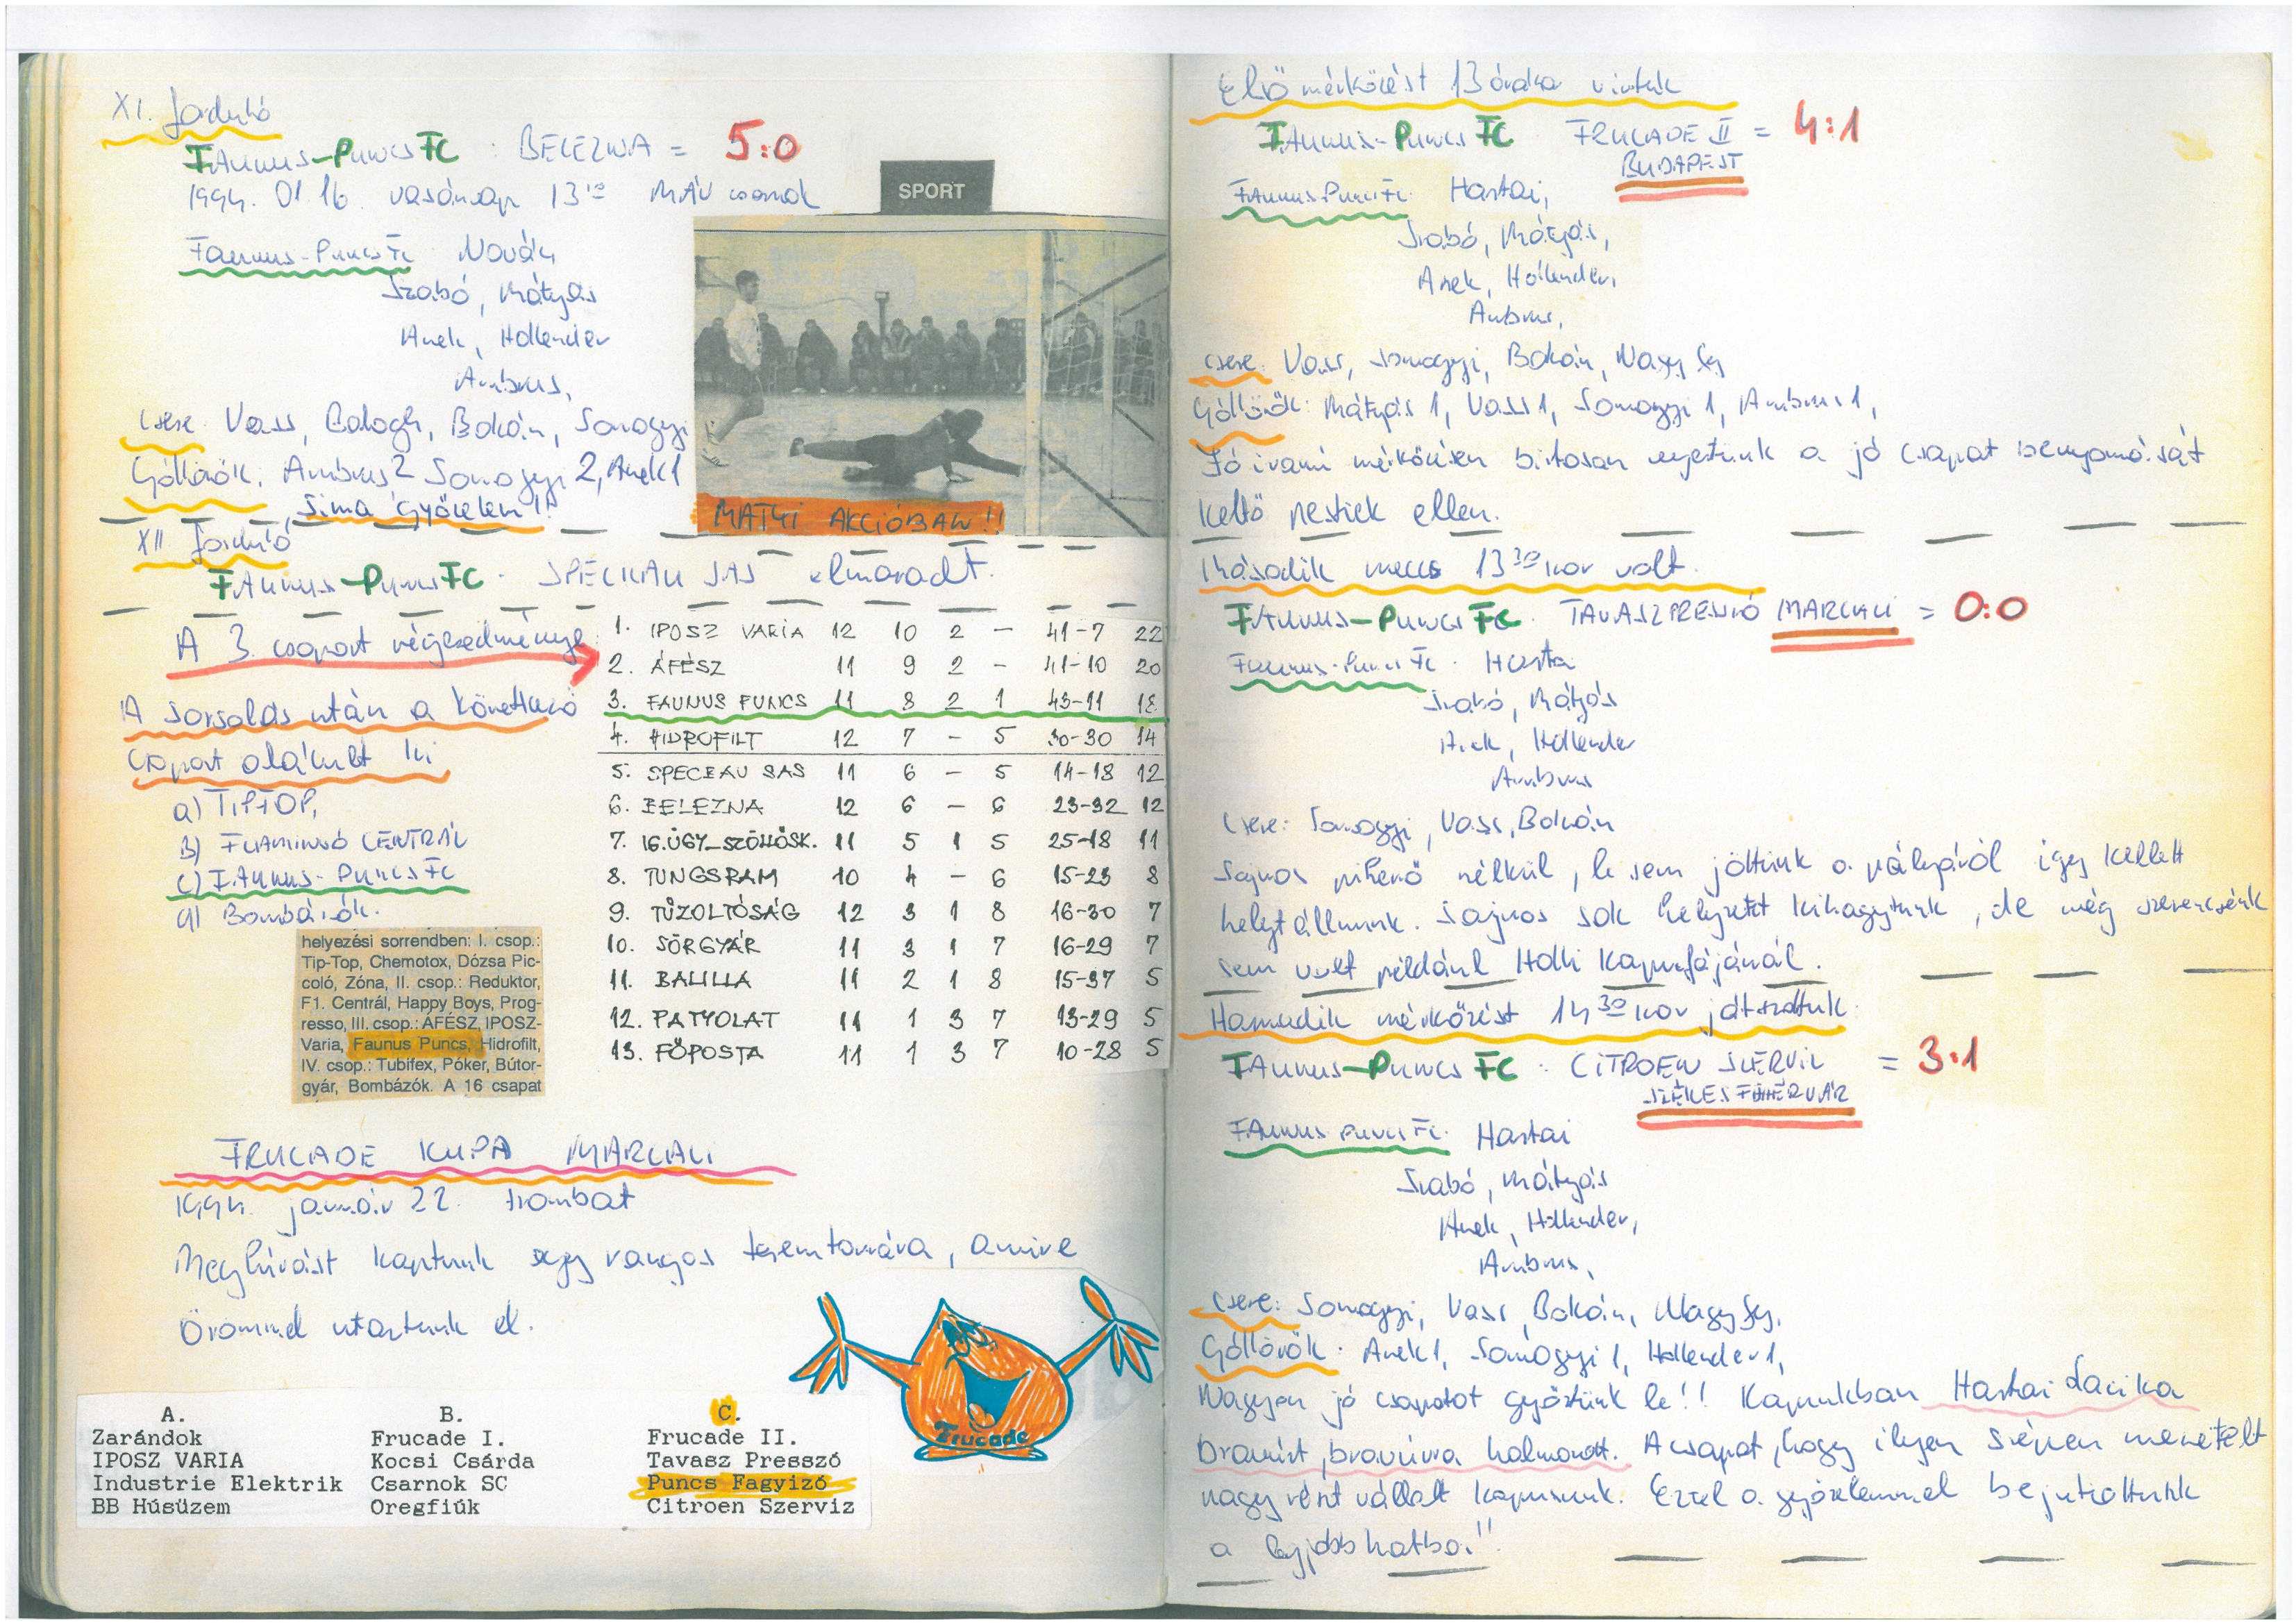 XI. forduló
FAUNUS-PUNCS FC : BELEZNA = 5:0
1994. 01 16. vasárnap 13¹⁰ MÁV csarnok
SPORT
Faunus-Puncs Fc Novák
Szabó, Mátyás
Anek, Hollender
Ambrus,
csere: Vass, Balogh, Bokán, Somogyi
Góllövők: Ambrus 2 Somogyi 2, Anek 1
Sima győzelem!!
MATYI AKCIÓBAN!!
XII forduló
FAUNUS-PUNCS FC : SPECIÁU SAS elmaradt.
A 3. csoport végeredménye
1. IPOSZ VARIA 12 10 2 - 41-7 22
2. ÁFÉSZ 11 9 2 - 41-10 20
3. FAUNUS PUNCS 11 8 2 1 43-11 18
4. HIDROFILT 12 7 - 5 30-30 14
5. SPECEAU SAS 11 6 - 5 14-18 12
6. BELEZNA 12 6 - 6 23-32 12
7. IG.ÜGY_SZŐLLŐSK. 11 5 1 5 25-18 11
8. TUNGSRAM 10 4 - 6 15-23 8
9. TŰZOLTÓSÁG 12 3 1 8 16-30 7
10. SÖRGYÁR 11 3 1 7 16-29 7
11. BALILLA 11 2 1 8 15-37 5
12. PATYOLAT 11 1 3 7 13-29 5
13. FŐPOSTA 11 1 3 7 10-28 5
A sorsolás után a következő
csoport alakult ki
a) TIPTOP,
B) FLAMINGÓ CENTRÁL
c) FAUNUS-PUNCS FC
d) Bombázók.
helyezési sorrendben: I. csop.:
Tip-Top, Chemotox, Dózsa Pic-
coló, Zóna, II. csop.: Reduktor,
F1. Centrál, Happy Boys, Prog-
resso, III. csop.: ÁFÉSZ, IPOSZ-
Varia, Faunus Puncs, Hidrofilt,
IV. csop.: Tubifex, Póker, Bútor-
gyár, Bombázók. A 16 csapat
FRUCADE KUPA MARCALI
1994. január 22. szombat
Meghívást kaptunk egy rangos teremtornára, amire
örömmel utaztunk el.
Frucade
A.
Zarándok
IPOSZ VARIA
Industrie Elektrik
BB Húsüzem
B.
Frucade I.
Kocsi Csárda
Csarnok SC
Öregfiúk
C.
Frucade II.
Tavasz Presszó
Puncs Fagyizó
Citroen Szerviz
Első mérkőzést 13 órakor vívtuk
FAUNUS-PUNCS FC FRUCADE II = 4:1
BUDAPEST
Faunus-Puncs Fc. Hartai,
Szabó, Mátyás,
Anek, Hollender,
Ambrus,
csere: Vass, Somogyi, Bokán, Nagy Gy
Góllövők: Mátyás 1, Vass 1, Somogyi 1, Ambrus 1,
Jó iramú mérkőzésen biztosan nyertünk a jó csapat benyomását
keltő pestiek ellen.
Második meccs 13³⁰ kor volt.
FAUNUS-PUNCS FC. TAVASZ PRESSZÓ MARCALI = 0:0
Faunus-Puncs Fc. Hartai
Szabó, Mátyás
Anek, Hollender
Ambrus
Csere: Somogyi, Vass, Bokán
Sajnos pihenő nélkül, le sem jöttünk a pályáról így kellett
helytállnunk. Sajnos sok helyzetet kihagytunk, de még szerencsénk
sem volt például Holli kapufájánál.
Harmadik mérkőzést 14³⁰ kor játszottuk.
FAUNUS-PUNCS FC : CITROEN SZERVIZ = 3:1
SZÉKESFEHÉRVÁR
FAUNUS PUNCS FC. Hartai
Szabó, Mátyás
Anek, Hollender,
Ambrus,
Csere: Somogyi, Vass, Bokán, Nagy Gy,
Góllövők: Anek 1, Somogyi 1, Hollender 1,
Nagyon jó csapatot győztünk le!! Kapunkban Hartai Lacika
bravúrt, bravúrra halmozott. A csapat, hogy ilyen szépen menetelt
nagy részt vállalt kapusunk. Ezzel a győzelemmel bejutottunk
a legjobb hatba!!